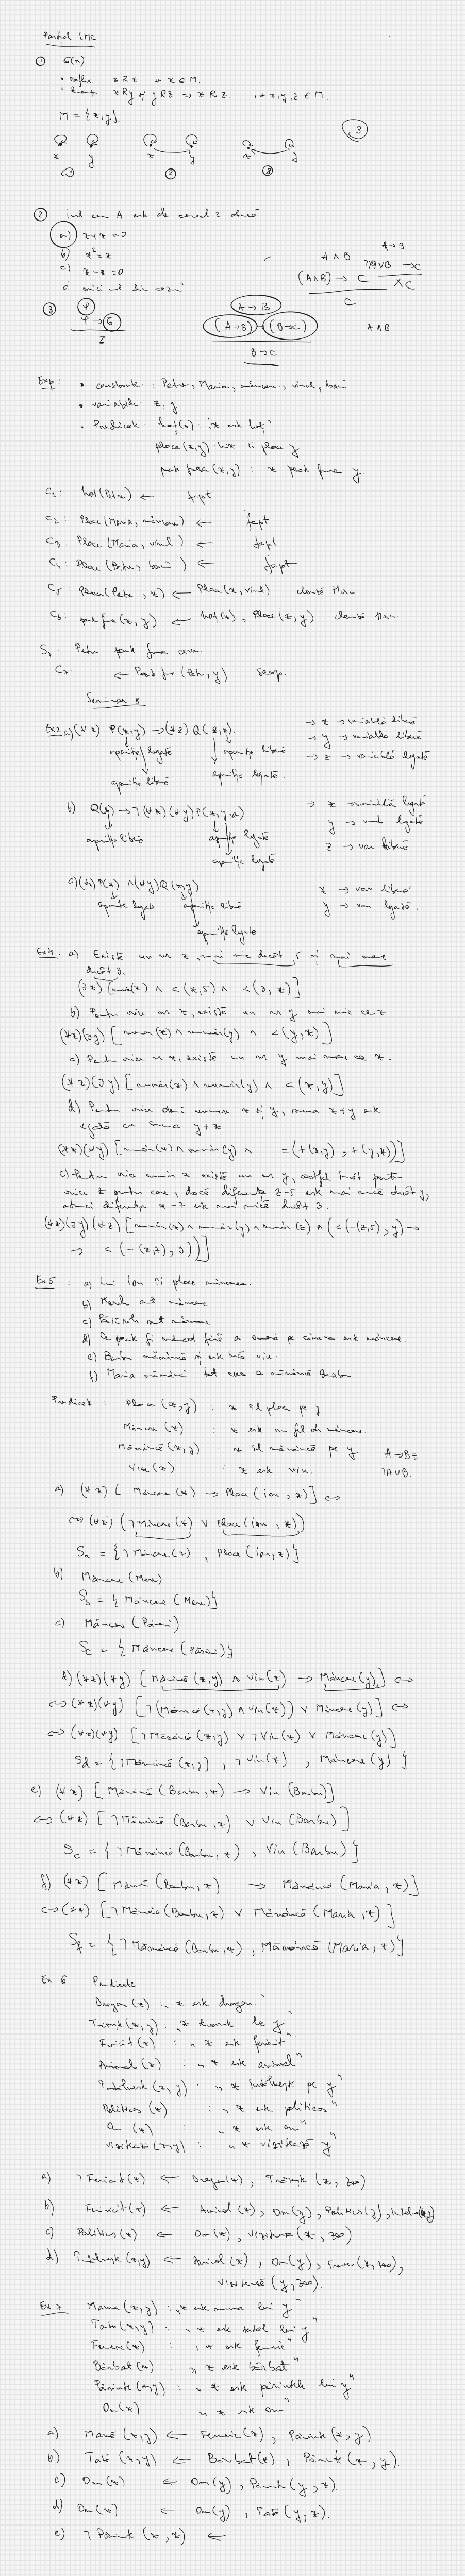 Partial LMC
① G(n)
• reflex. x R x ∀ x ∈ M.
• tranz x R y și y R z => x R z. , ∀ x, y, z ∈ M
M = {x, y}.
3
x y x y x y
① ② ③
② inel com A este de caract 2 dacă
a) x + x = 0
b) x² = x
c) x - x = 0
d orice el din
A ∧ B
(A ∧ B) → C
C
A → B
③ φ
φ → G
A → B
(A → B) (B → C)
B → C
A ∧ B
Exp: • constante: Petru, Maria, mâncare, vinul, bani
• variabile x, y
• Predicate hoț(x): "x este hoț"
place(x, y): lui x îi place y
poate fura(x, y): x poate fura y.
C1: hoț(Petru) ← fapt
C2: Place(Maria, mâncare) ← fapt
C3: Place(Maria, vinul) ← fapt
C4: Place(Petru, bani) ← fapt
C5: Place(Petru, x) ← Place(x, vinul) clauză Horn
C6: poate fura(x, y) ← hoț(x), Place(x, y) clauză Horn.
S7: Petru poate fura ceva.
C7: ← Poate fura(Petru, y) Scop.
Seminar 9
Ex2 a) (∀ x) P(x, y) → (∀ z) Q(z, x).
→ x → variabilă liberă
→ y → variabilă liberă
→ z → variabilă legată
apariție legată apariție liberă
apariție liberă apariție legată.
b) Q(z) → ¬(∀ x)(∀ y) P(x, y, a)
→ x → variabilă legată
y → var legată
z → var liberă
apariție liberă apariție legată
apariție legată
c) (∀x) P(x) ∧ (∀ y) Q(x, y)
x → var liberă
y → var legată.
apariție legată apariție liberă
apariție legată
Ex 4: a) Există un nr x, mai mic decât 5 și mai mare
decât 3.
(∃ x) [număr(x) ∧ <(x, 5) ∧ <(3, x)]
b) Pentru orice nr x, există un nr y mai mic ca x
(∀ x)(∃ y) [număr(x) ∧ număr(y) ∧ <(y, x)]
c) Pentru orice nr x, există un nr y mai mare ca x.
(∀ x)(∃ y) [număr(x) ∧ număr(y) ∧ <(x, y)]
d) Pentru orice două numere x și y, suma x+y este
egală cu suma y+x
(∀ x)(∀ y) [număr(x) ∧ număr(y) ∧ =(+(x, y), +(y, x))]
e) Pentru orice număr x există un nr y, astfel încât pentru
orice z pentru care, dacă diferența z-5 este mai mică decât y,
atunci diferența x-7 este mai mică decât 3.
(∀ x)(∃ y)(∀ z) [număr(x) ∧ număr(y) ∧ număr(z) ∧ (<(-(z, 5), y) →
→ <(-(x, 7), 3))]
Ex 5: a) Lui Ion îi place mâncarea.
b) Merele sunt mâncare
c) Păsările sunt mâncare
d) Ce poate fi mâncat fără a omorî pe cineva este mâncare.
e) Barbu mănâncă și este încă viu.
f) Maria mănâncă tot ceea ce mănâncă Barbu
Predicate: Place(x, y) : x îl place pe y
Mâncare(x) : x este un fel de mâncare.
Mănâncă(x, y) : x îl mănâncă pe y
Viu(x) : x este viu.
A → B =
¬A ∪ B.
a) (∀ x) [Mâncare(x) → Place(ion, x)] <=>
<=> (∀ x) (¬ Mâncare(x) ∨ Place(ion, x))
Sa = {¬ Mâncare(x), Place(ion, x)}
b) Mâncare(Mere)
Sb = {Mâncare(Mere)}
c) Mâncare(Păsări)
Sc = {Mâncare(Păsări)}
d) (∀ x)(∀ y) [Mănâncă(x, y) ∧ Viu(x) → Mâncare(y)] <=>
<=> (∀ x)(∀ y) [¬(Mănâncă(x, y) ∧ Viu(x)) ∨ Mâncare(y)] <=>
<=> (∀ x)(∀ y) [¬ Mănâncă(x, y) ∨ ¬ Viu(x) ∨ Mâncare(y)]
Sd = {¬ Mănâncă(x, y), ¬ Viu(x), Mâncare(y)}
e) (∀ x) [Mănâncă(Barbu, x) → Viu(Barbu)]
<=> (∀ x) [¬ Mănâncă(Barbu, x) ∨ Viu(Barbu)]
Se = {¬ Mănâncă(Barbu, x), Viu(Barbu)}
f) (∀ x) [Mănâncă(Barbu, x) → Mănâncă(Maria, x)]
<=> (∀ x) [¬ Mănâncă(Barbu, x) ∨ Mănâncă(Maria, x)]
Sf = {¬ Mănâncă(Barbu, x), Mănâncă(Maria, x)}
Ex 6. Predicate
Dragon(x): "x este dragon"
Trăiește(x, y): "x trăiește la y"
Fericit(x) : "x este fericit"
Animal(x) : "x este animal"
Întâlnește(x, y) : "x întâlnește pe y"
Politicos(x) : "x este politicos"
Om(x) : "x este om"
Vizitează(x, y) : "x vizitează y"
a) ¬ Fericit(x) ← Dragon(x), Trăiește(x, zoo)
b) Fericit(x) ← Animal(x), Om(y), Politicos(y), Întâlnește(x, y)
c) Politicos(x) ← Om(x), vizitează(x, zoo)
d) Întâlnește(x, y) ← Animal(x), Om(y), Trăiește(x, zoo),
vizitează(y, zoo).
Ex 7 Mama(x, y) : "x este mama lui y"
Tata(x, y) : "x este tatăl lui y"
Femeie(x) : "x este femeie"
Bărbat(x) "x este bărbat"
Părinte(x, y) : "x este părintele lui y"
Om(x) : "x este om"
a) Mamă(x, y) ← Femeie(x), Părinte(x, y)
b) Tată(x, y) ← Bărbat(x), Părinte(x, y).
c) Om(x) ← Om(y), Părinte(y, x).
d) Om(x) ← Om(y), Tată(y, x).
e) ¬ Părinte(x, x) ←